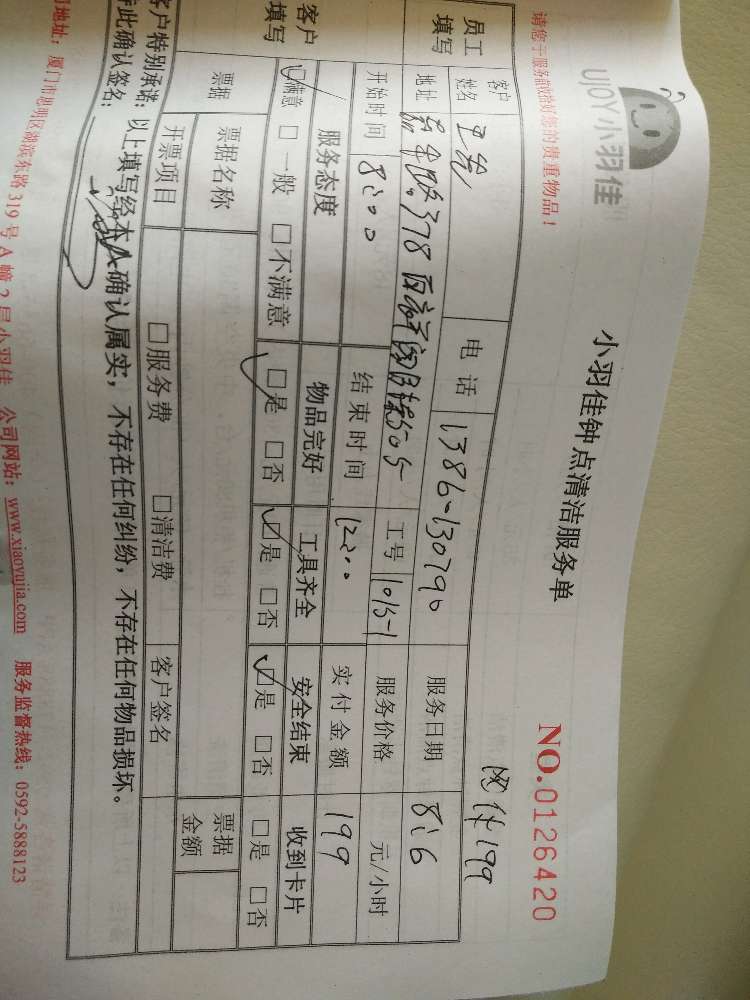 UJOY小羽佳
小羽佳钟点清洁服务单
NO.0126420
请您于服务前收拾好您的贵重物品!
199
员工填写 客户姓名 电话 1386-130790 服务日期 8:6
地址 378 505 工号 1015-1 服务价格 元/小时
开始时间 8:00 结束时间 12:00 实付金额 199
客户填写 服务态度 物品完好 工具齐全 安全结束 收到卡片
☑满意 □一般 □不满意 ☑是 □否 ☑是 □否 ☑是 □否 □是 □否
票据 票据名称 票据金额
开票项目 □服务费 □清洁费 客户签名
客户特别承诺:以上填写经本人确认属实,不存在任何纠纷,不存在任何物品损坏。
此确认签名:
地址:厦门市思明区湖滨东路319号A幢2层小羽佳 公司网站:www.xiaoyujia.com 服务监督热线:0592-5888123